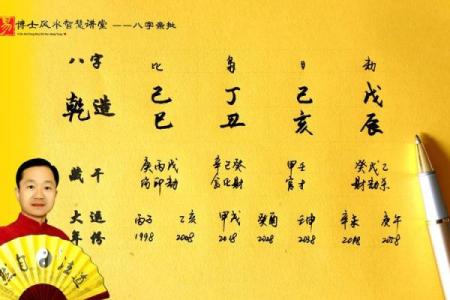 易 博士风水智慧讲堂 ——八字亲批
八字 比 枭 日 劫
乾造 己 丁 己 戊
巳 丑 亥 辰
藏干 庚丙戊 辛己癸 甲壬 癸戊乙
伤印劫 食比财 官才 财劫杀
大運 丙子 乙亥 甲戌 癸酉 壬申 辛未 庚午
年份 1998 2008 2018 2028 2038 2048 2058
然自法道